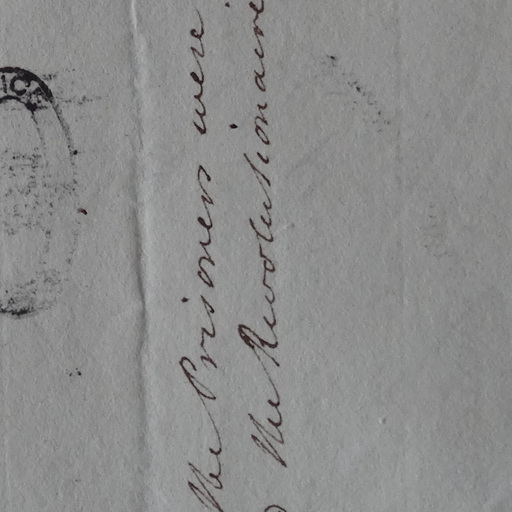 The Prisoners were
the Revolutionaire